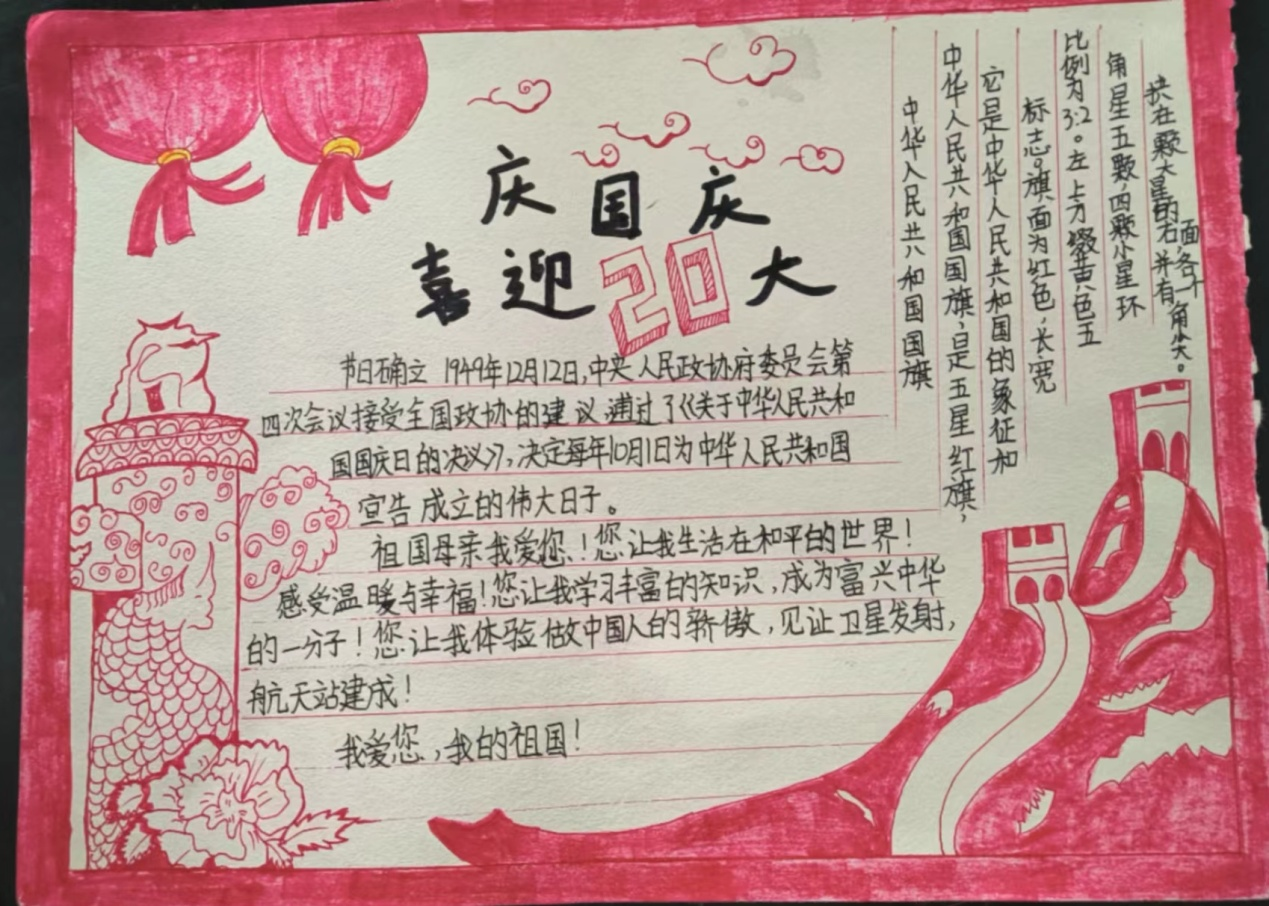 庆国庆
喜迎20大
节日确立 1949年12月12日,中央人民政协府委员会第
四次会议接受全国政协的建议通过了《关于中华人民共和
国国庆日的决议》,决定每年10月1日为中华人民共和国
宣告成立的伟大日子。
祖国母亲我爱您!您让我生活在和平的世界!
感受温暖与幸福!您让我学习丰富的知识,成为富兴中华
的一分子!您让我体验做中国人的骄傲,见证卫星发射,
航天站建成!
我爱您,我的祖国!
中华人民共和国国旗
中华人民共和国国旗,是五星红旗,
它是中华人民共和国的象征和
标志。旗面为红色,长宽
比例为3:2。左上方缀黄色五
角星五颗,四颗小星环
拱在颗大星的右并有
面,各个角尖。